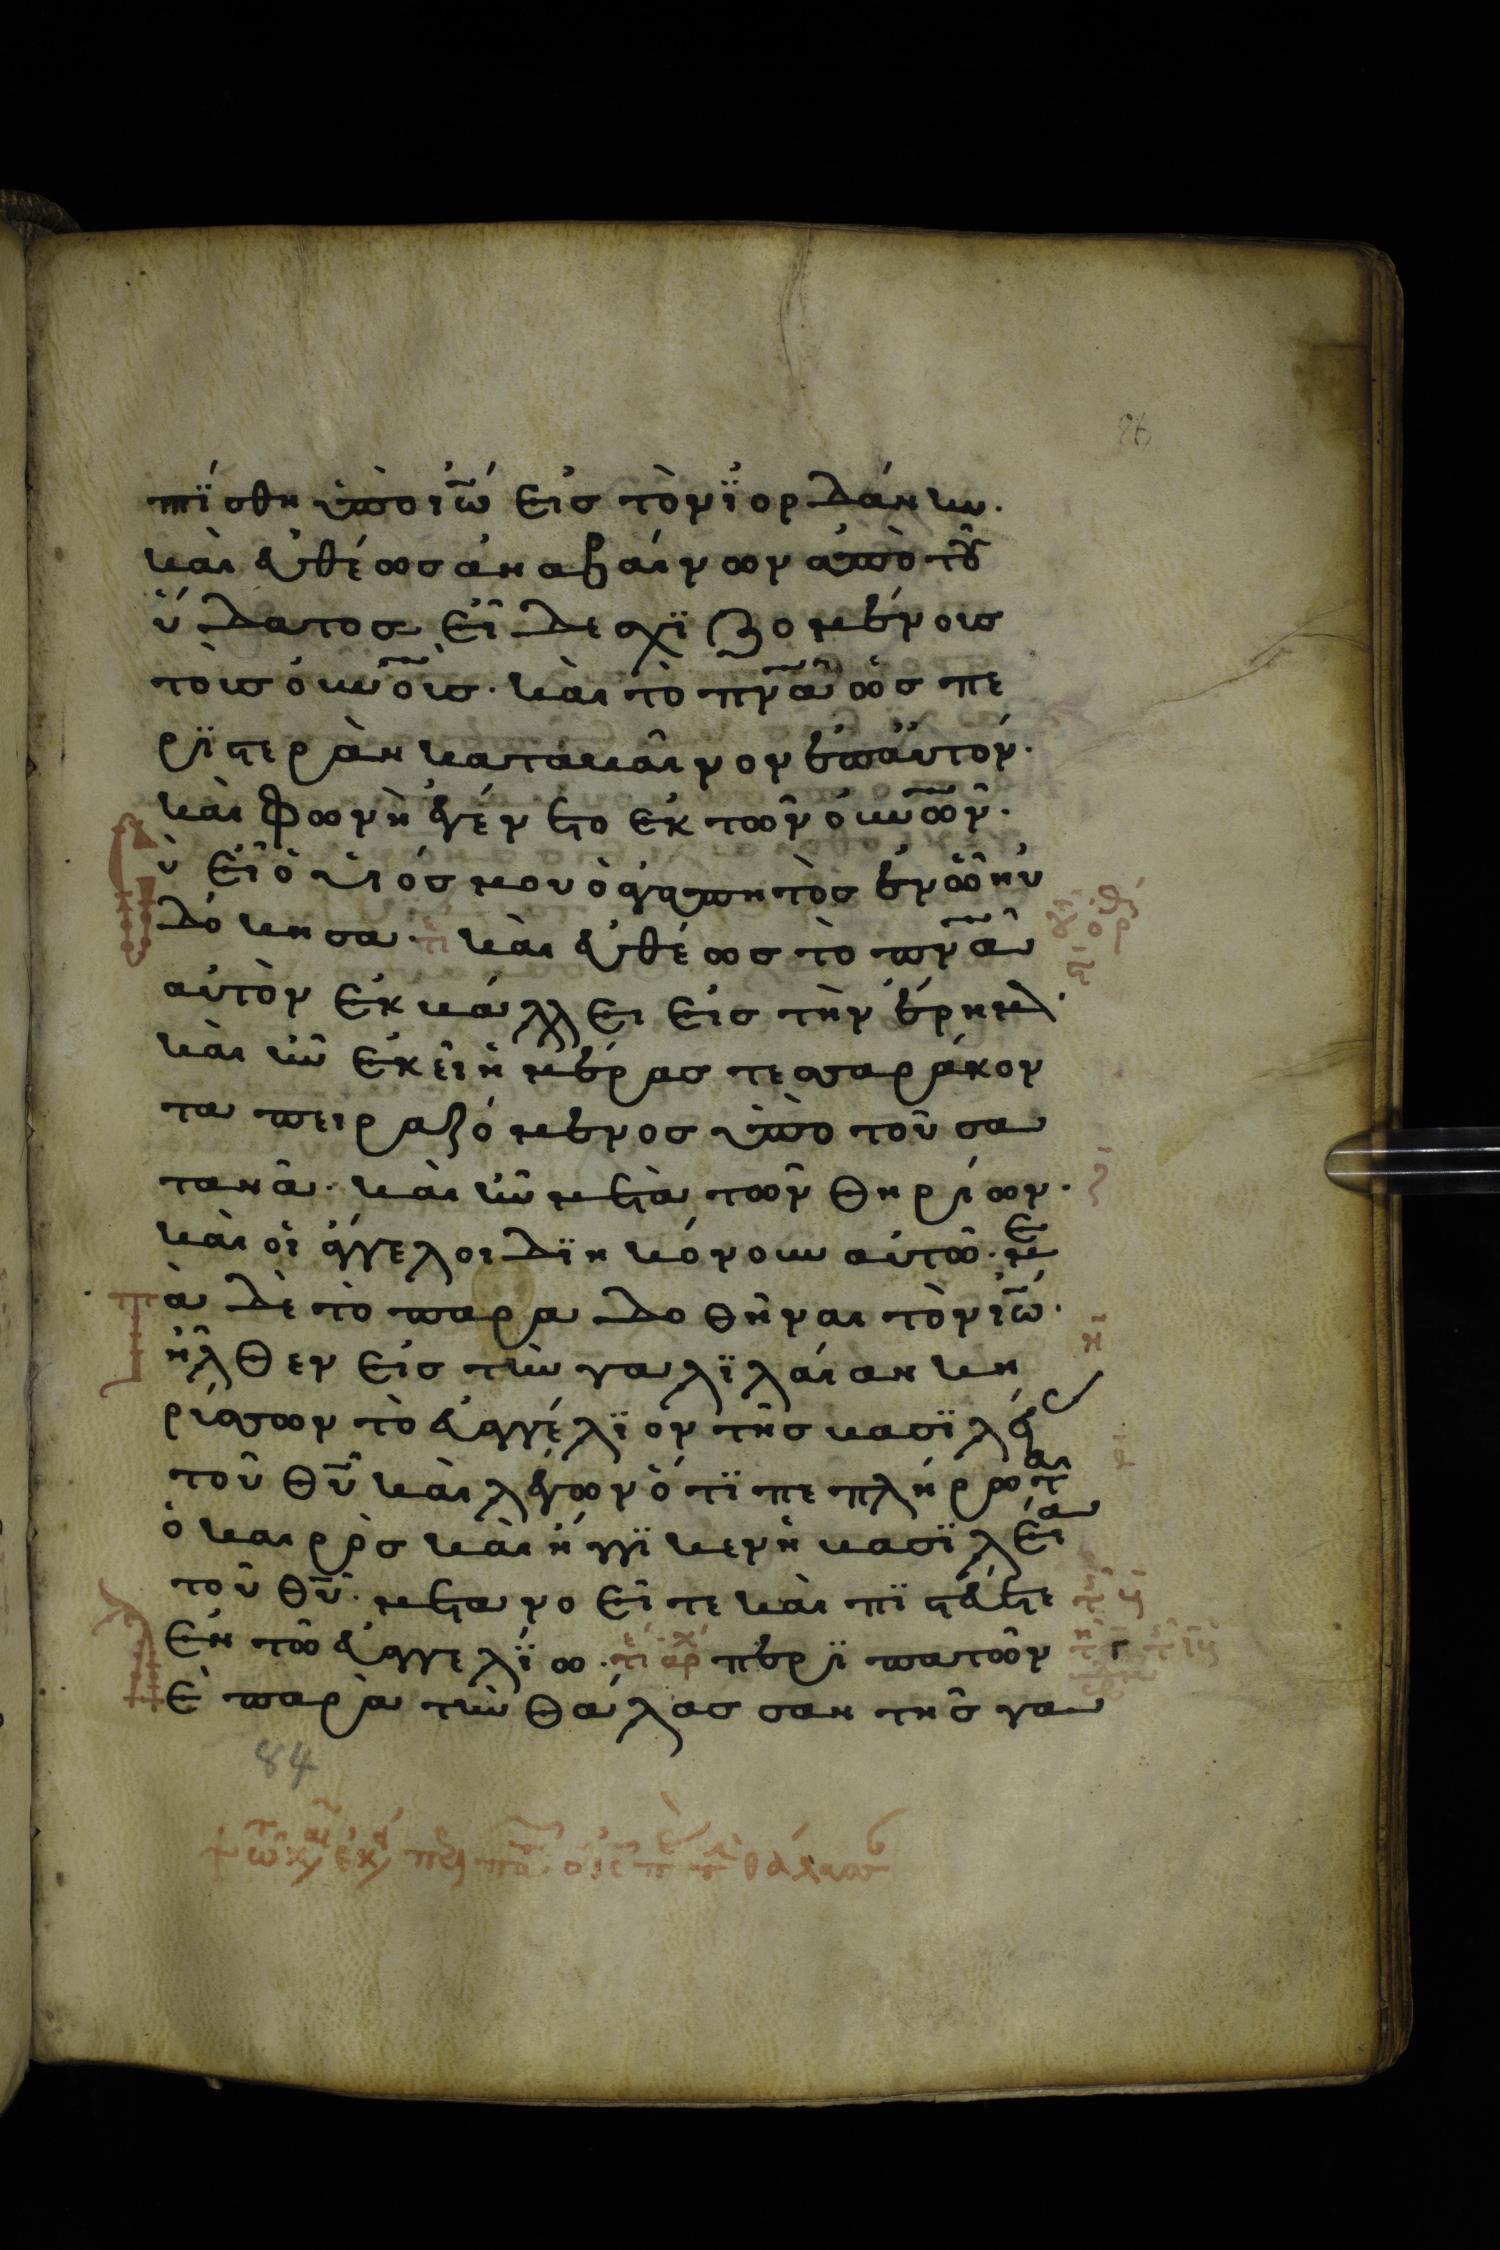 πίσθη ὑπὸ ἰω̅ εἰς τὸν ἰορδάνην.
καὶ εὐθέως ἀναβαίνων ἀπὸ τοῦ
ὕδατος εἶδε σχιζομένους
τοὺς οὐνο̅ὺς. καὶ τὸ πνα̅ ὡς πε
ριστερὰν καταβαῖνον ἐπ' αὐτόν.
καὶ φωνὴ ἐγένετο ἐκ τῶν οὐνω̅ν.
Σὺ εἶ ὁ υἱός μου ὁ ἀγαπητὸς ἐν ᾧ ηὐ
δόκησα. καὶ εὐθέως τὸ πνα̅
αὐτὸν ἐκβάλλει εἰς τὴν ἔρημον
καὶ ἦν ἐκεῖ ἡμέρας τεσσαράκον
τα πειραζόμενος ὑπὸ τοῦ σα
τανᾶ. καὶ ἦν μετὰ τῶν θηρίων.
καὶ οἱ ἄγγελοι διηκόνουν αὐτῶ. με
Τὰ δὲ τὸ παραδοθῆναι τὸν ἰω̅.
ἦλθεν εἰς τὴν γαλιλαίαν κη
ρύσσων τὸ εὐαγγέλιον τῆς βασιλεί
τοῦ θυ̅ καὶ λέγων ὅτι πεπλήρωται
ὁ καιρὸς καὶ ἤγγικεν ἡ βασιλεία
τοῦ θυ̅. μετανοεῖτε καὶ πιστεύετε
ἐν τῶ εὐαγγελίω. περιπατῶν
δὲ παρὰ τὴν θάλασσαν τῆς γα
84